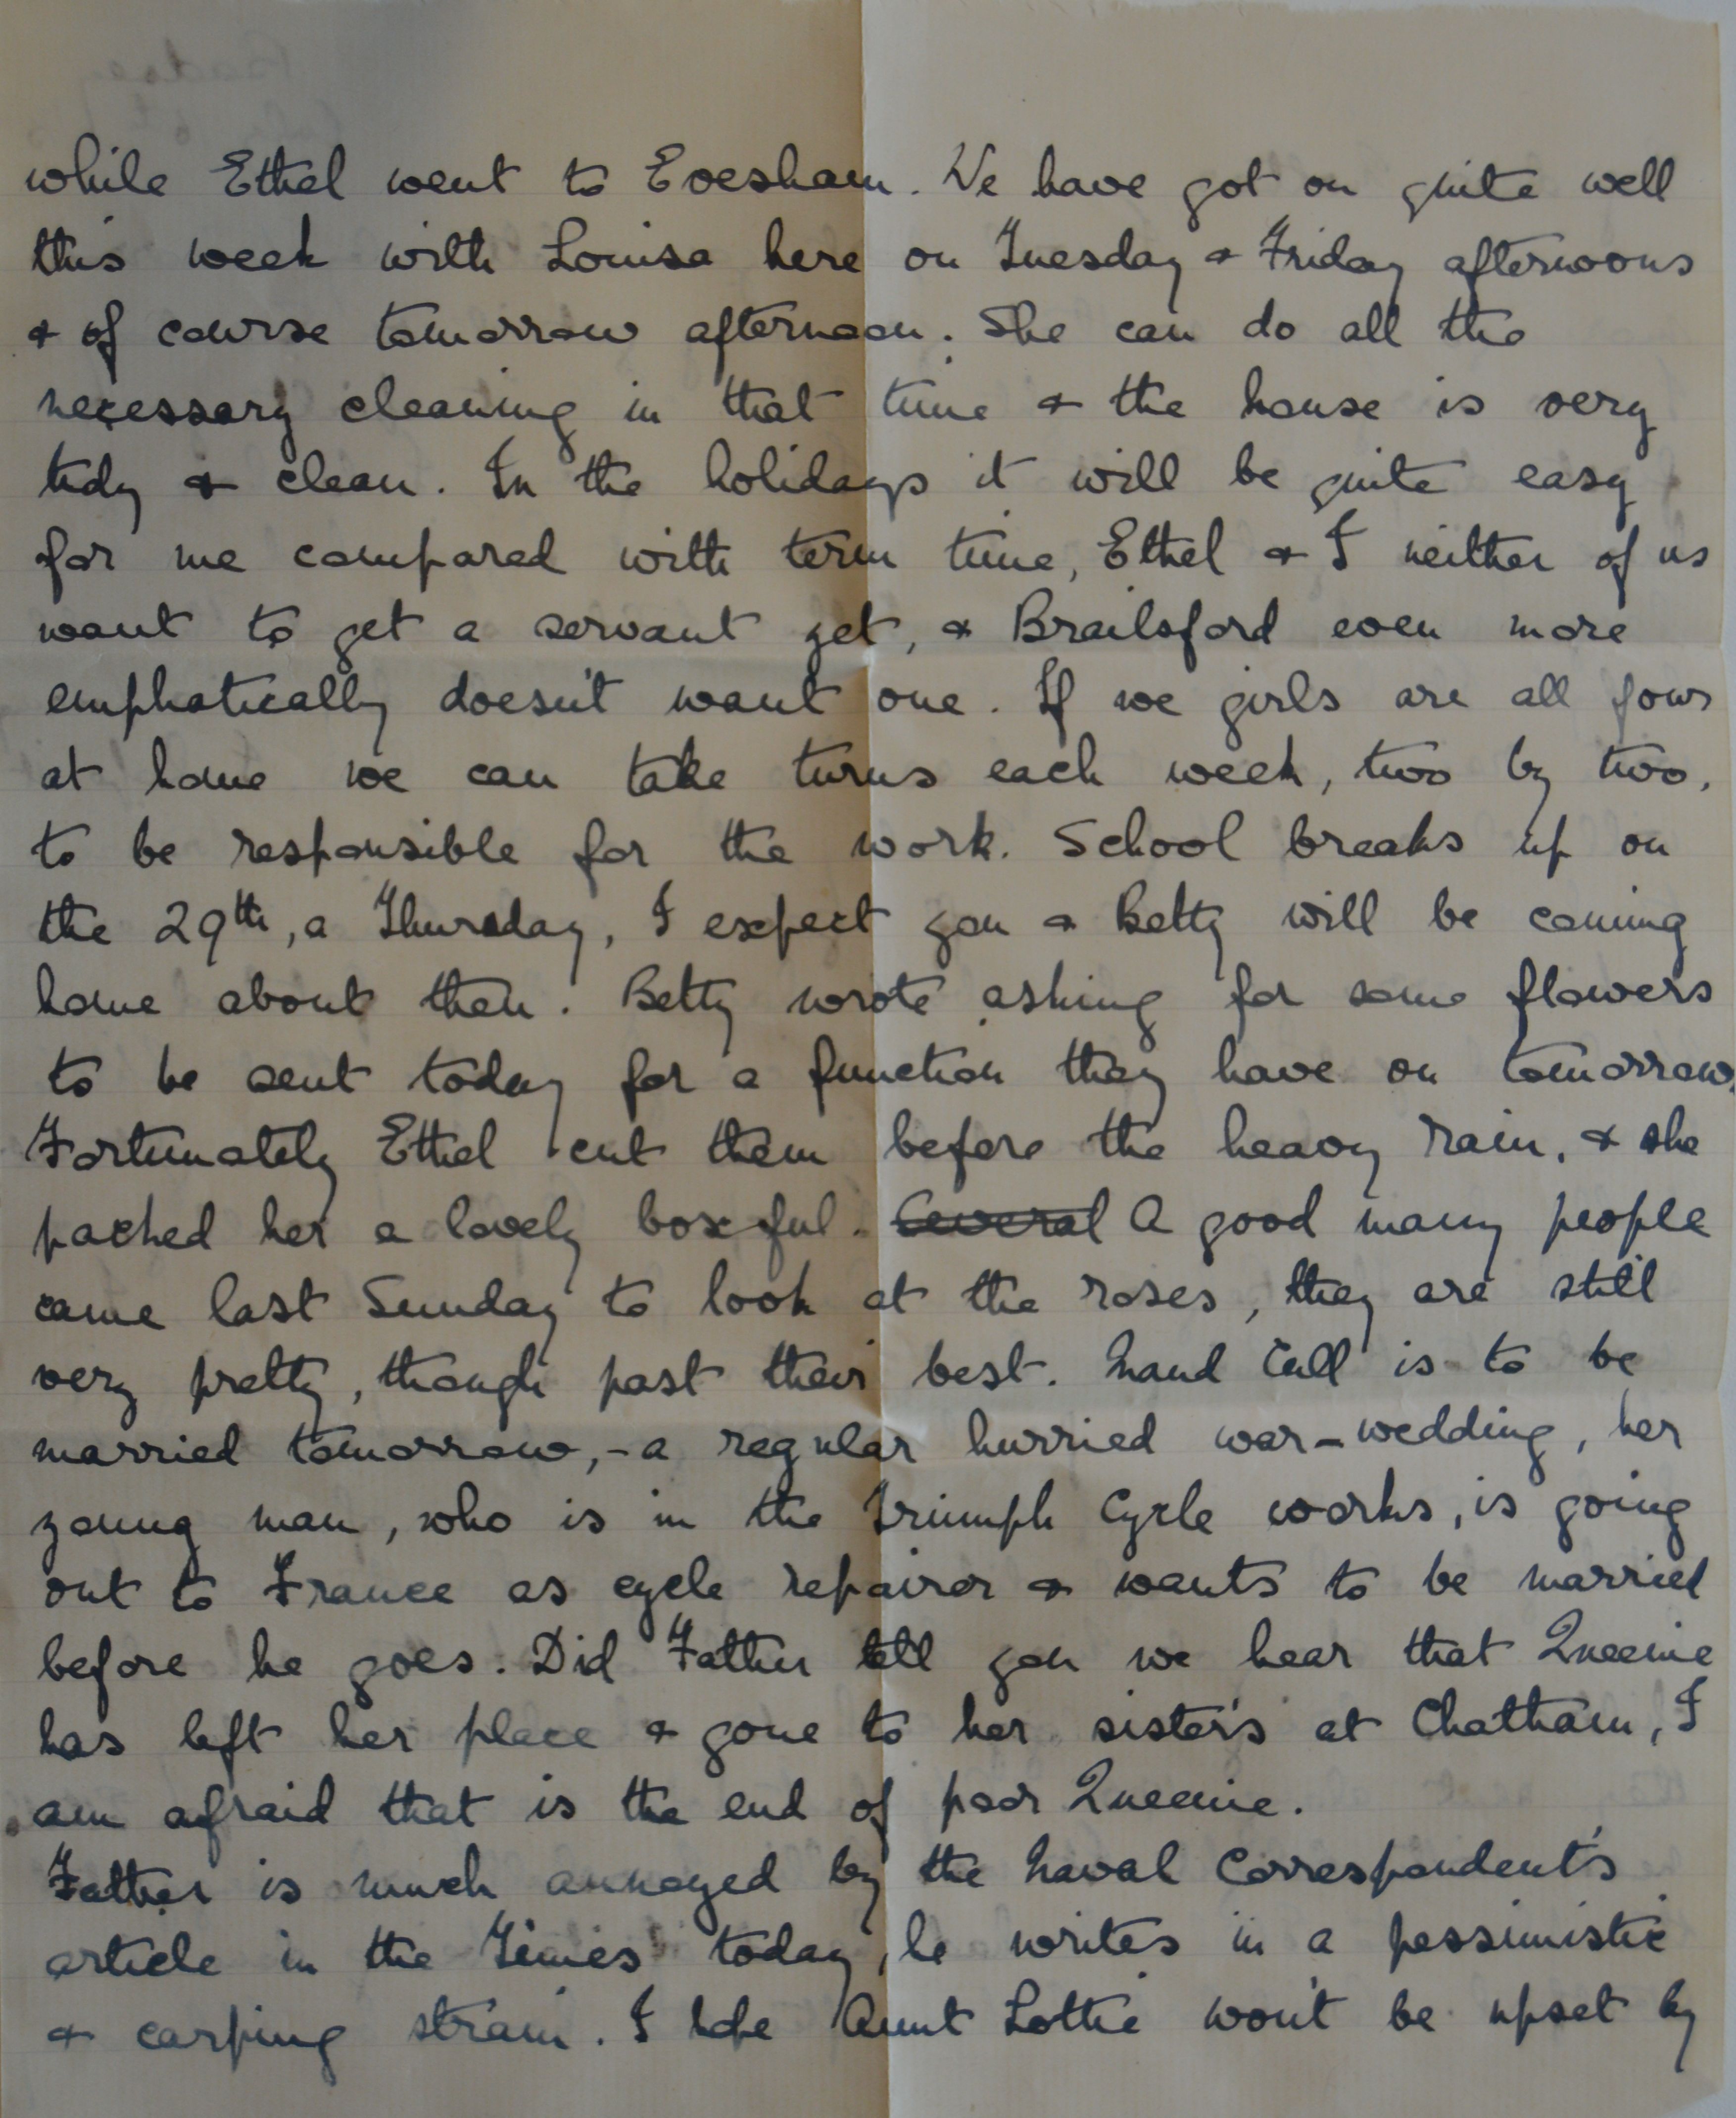 while Ethel went to Evesham. We have got on quite well
this week with Louisa here on Tuesday & Friday afternoons
& of course tomorrow afternoon. She can do all the
necessary cleaning in that time & the house is very
tidy & clean. In the holidays it will be quite easy
for me compared with term time, Ethel & I neither of us
want to get a servant yet, & Brailsford even more
emphatically doesn't want one. If we girls are all four
at home we can take turns each week, two by two,
to be responsible for the work. School breaks up on
the 29th, a Thursday, I expect you & Betty will be coming
home about then. Betty wrote asking for some flowers
to be sent today for a function they have on tomorrow.
Fortunately Ethel cut them before the heavy rain, & she
packed her a lovely boxful. Several A good many people
came last Sunday to look at the roses, they are still
very pretty, though past their best. Maud Cull is to be
married tomorrow, - a regular hurried war-wedding, her
young man, who is in the Triumph Cycle works, is going
out to France as cycle repairer & wants to be married
before he goes. Did Father tell you we hear that Queenie
has left her place & gone to her sister's at Chatham, I
am afraid that is the end of poor Queenie.
Father is much annoyed by the Naval Correspondent's
article in the Times today, he writes in a pessimistic
& carping strain. I hope Aunt Lottie won't be upset by